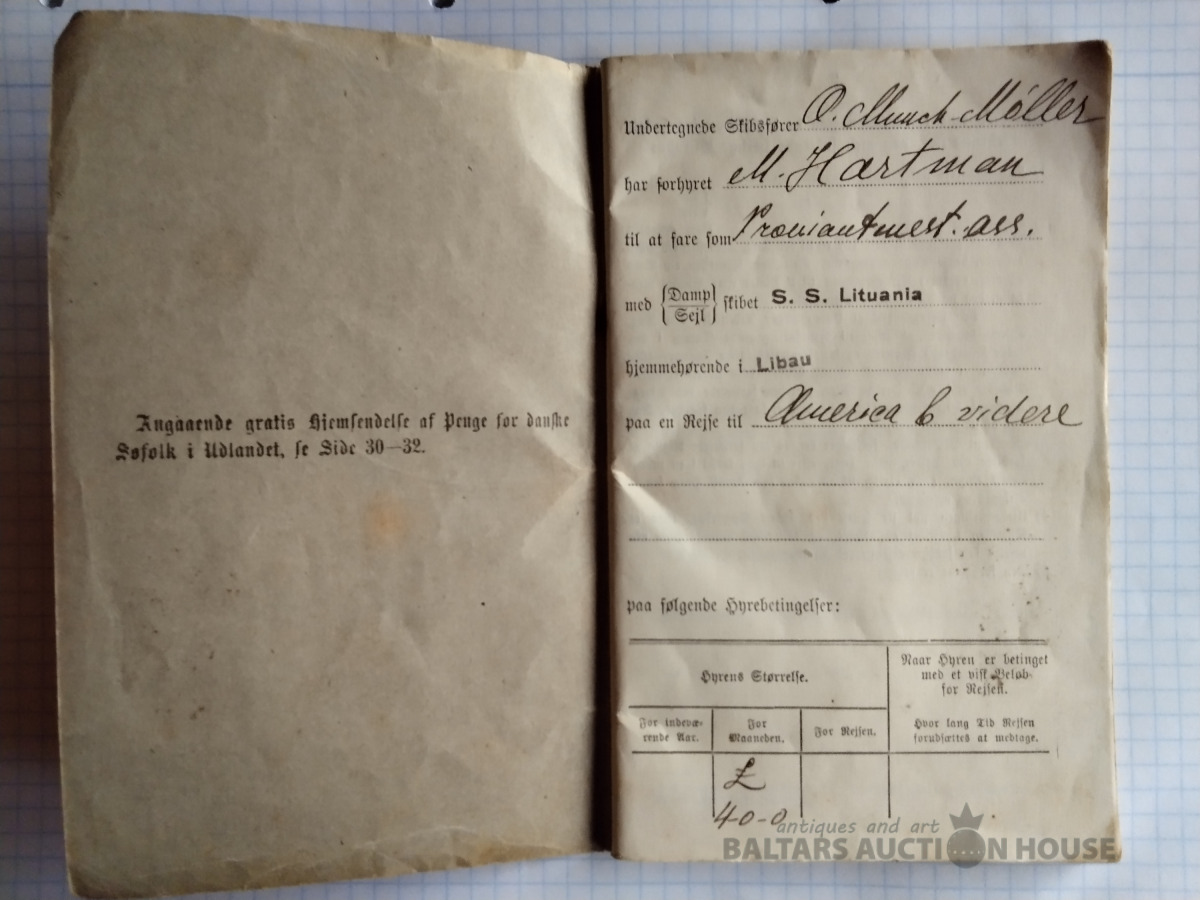 Angaaende gratis Hjemsendelse af Penge for danske
Søfolk i Udlandet, se Side 30—32.
Undertegnede Skibsfører O. Munck-Møller
har forhyret M. Hartman
til at fare som Proviantmest. ass.
med {Damp/Sejl} skibet S. S. Lituania
hjemmehørende i Libau
paa en Rejse til America & videre
paa følgende Hyrebetingelser:
Hyrens Størrelse.
Naar Hyren er betinget
med et vist Beløb
for Rejsen.
For indevæ-
rende Aar.
For
Maaneden.
For Rejsen.
Hvor lang Tid Rejsen
forudsættes at medtage.
£
40-0
antiques and art
BALTARS AUCTION HOUSE